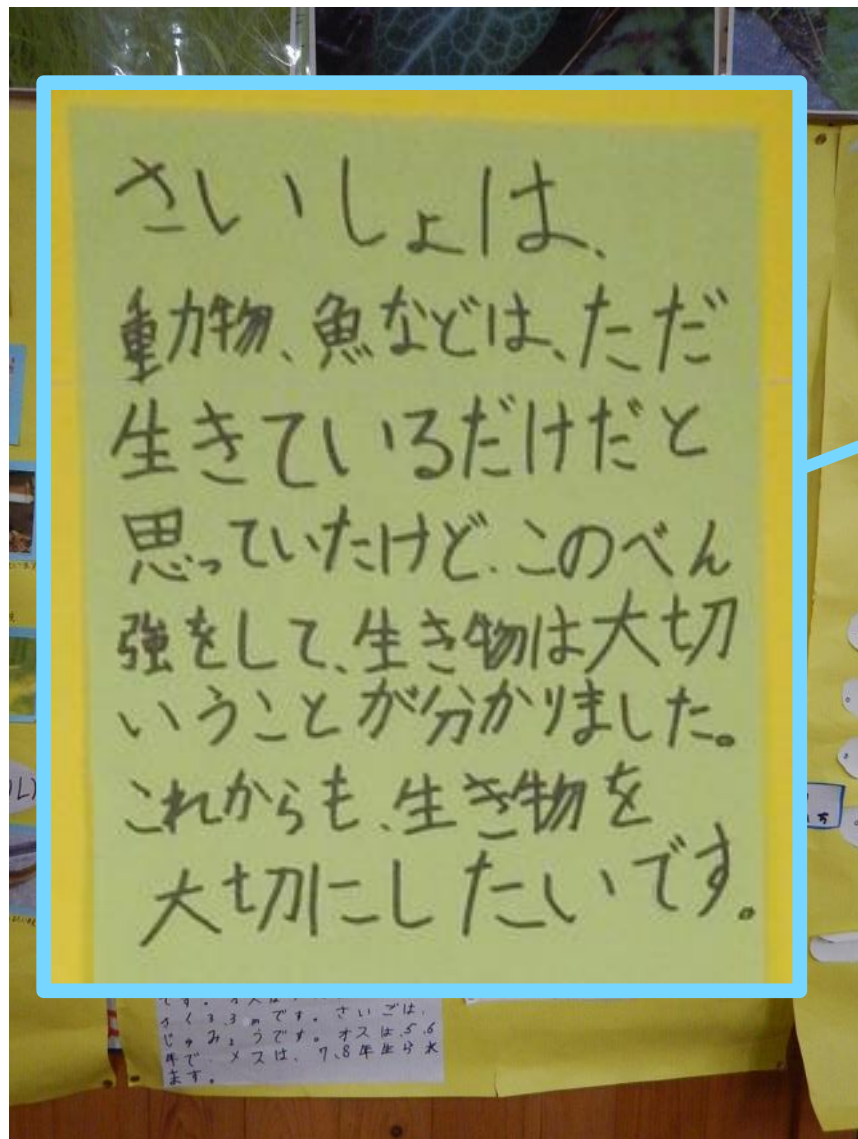 さいしょは、
動物、魚などは、ただ
生きているだけだと
思っていたけど、このべん
強をして、生き物は大切
いうことが分かりました。
これからも、生き物を
大切にしたいです。
さくる3.3mです。さいごは、
じゅみょうです。オスは、5、6
年で、メスは、7、8年生ら水
ます。